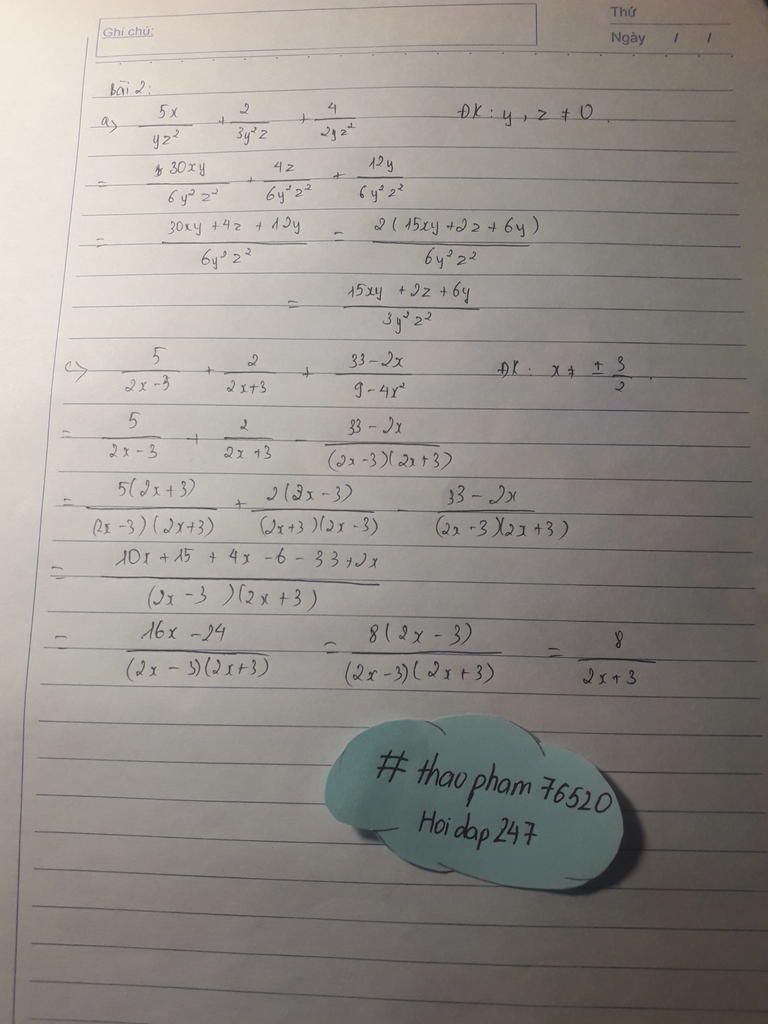 Thứ
Ghi chú:
Ngày / /
Bài 2:
a> 5x/yz² + 2/3y²z + 4/2yz² ĐK: y, z ≠ 0.
= 30xy/6y²z² + 4z/6y²z² + 12y/6y²z²
= (30xy + 4z + 12y)/6y²z² = 2(15xy + 2z + 6y)/6y²z²
= (15xy + 2z + 6y)/3y²z²
c> 5/(2x-3) + 2/(2x+3) + (33-2x)/(9-4x²) ĐK: x ≠ ± 3/2.
= 5/(2x-3) + 2/(2x+3) - (33-2x)/(2x-3)(2x+3)
= 5(2x+3)/(2x-3)(2x+3) + 2(2x-3)/(2x+3)(2x-3) - (33-2x)/(2x-3)(2x+3)
= (10x + 15 + 4x - 6 - 33 + 2x)/(2x-3)(2x+3)
= (16x - 24)/(2x-3)(2x+3) = 8(2x-3)/(2x-3)(2x+3) = 8/(2x+3)
# thaopham76520
Hoidap247